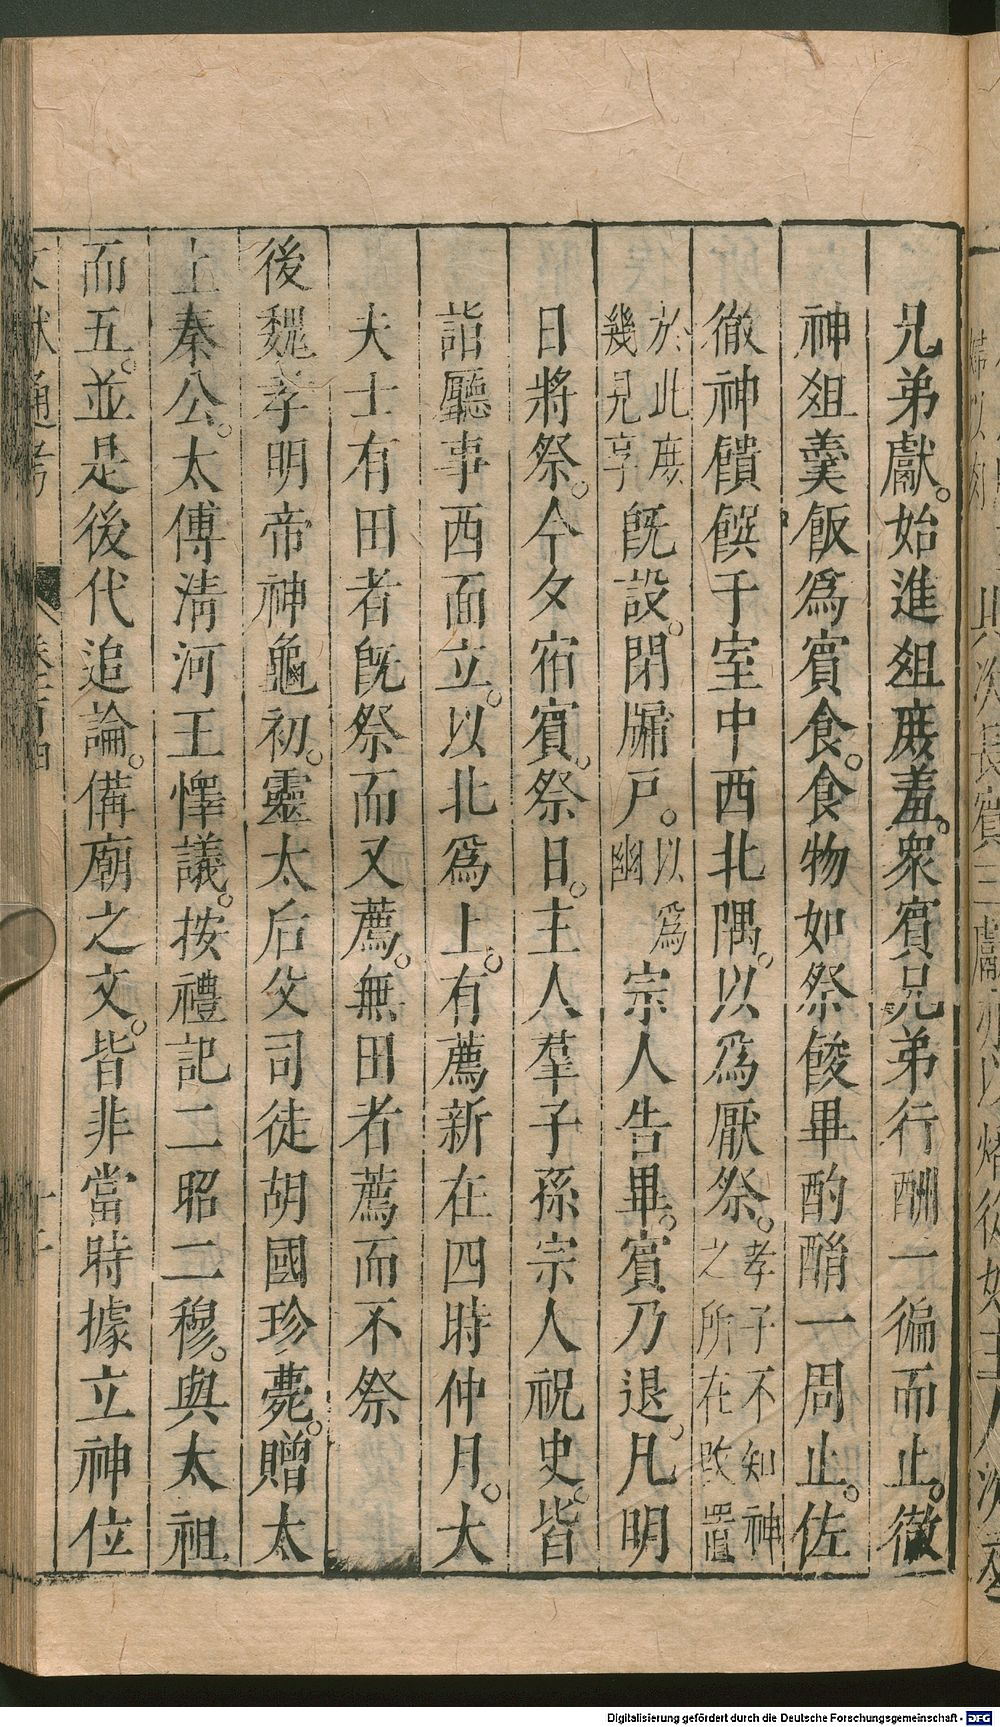 兄弟獻。始進俎庶羞。衆賓兄弟行酬一徧而止。徹
神俎羹飯爲賓食。食物如祭餕畢酌酳一周止。佐
徹神饋饌于室中西北隅。以爲厭祭。孝子不知神之所在故置
於此庶幾見享旣設。閉牖戸。以爲幽宗人告畢。賓乃退。凡明
日將祭。今夕宿賓。祭日。主人羣子孫宗人祝史。皆
詣廳事西面立。以北爲上。有薦新在四時仲月。大
夫士有田者旣祭而又薦。無田者薦而不祭
後魏孝明帝神龜初。靈太后父司徒胡國珍薨。贈太
上秦公。太傅淸河王懌議。按禮記二昭二穆。與太祖
而五。並是後代追論。備廟之文。皆非當時據立神位
文獻通考 卷一百四
Digitalisierung gefördert durch die Deutsche Forschungsgemeinschaft - DFG